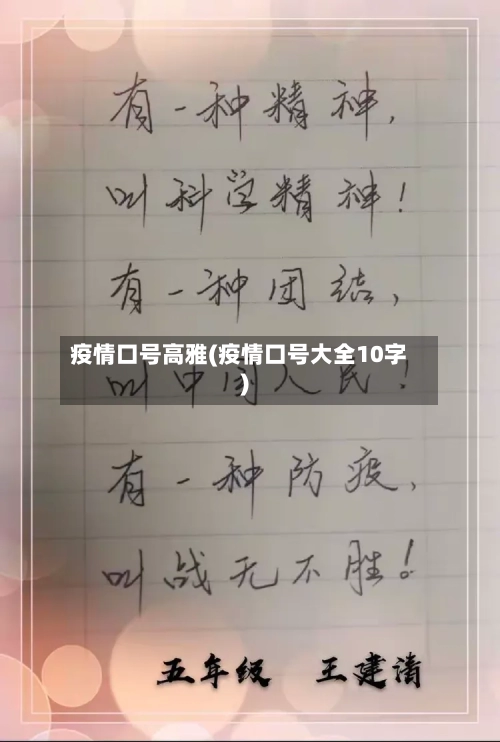 有一种精神，
叫科学精神！
有一种团结，
疫情口号高雅(疫情口号大全10字
)
叫中国人民！
有一种防疫，
叫战无不胜！
五年级 王建清